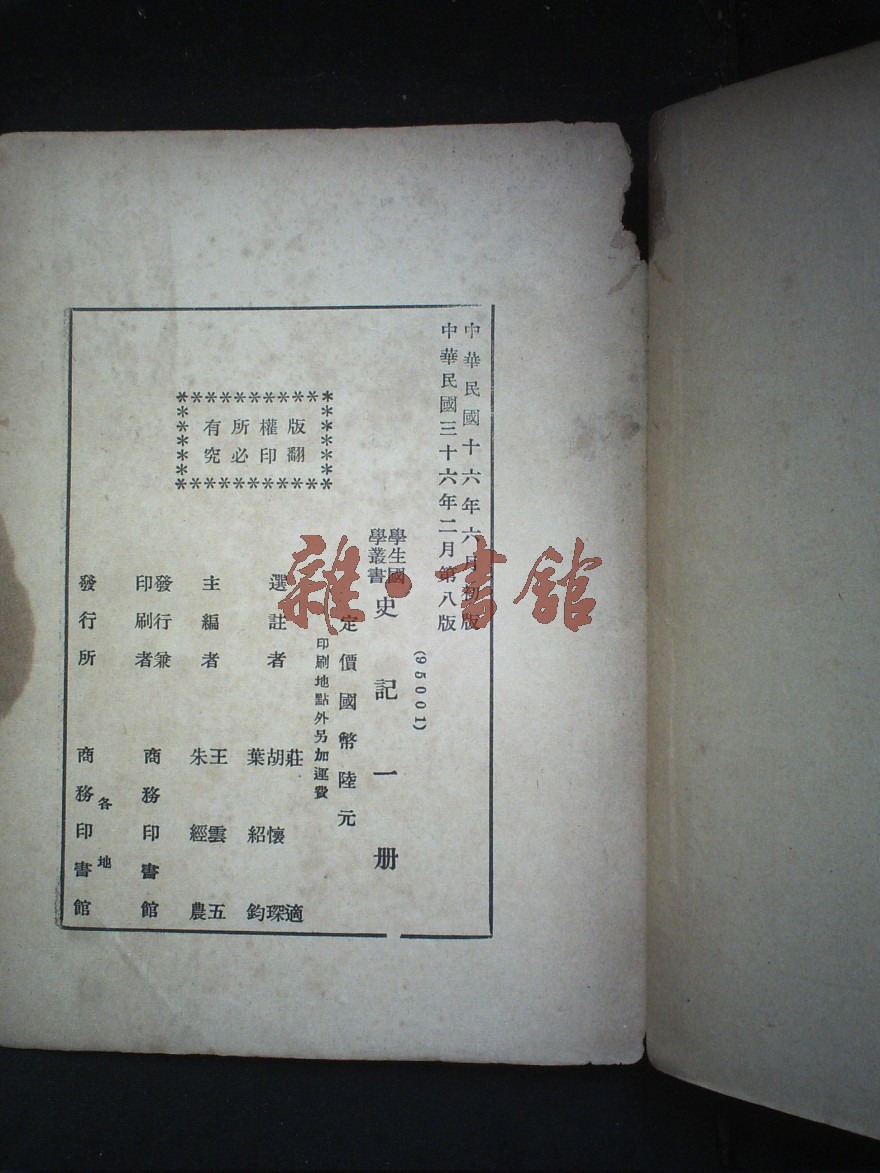 中華民國十六年六月初版
中華民國三十六年二月第八版
(95001)
學生國
學叢書
史記一册
定價國幣陸元
印刷地點外另加運費
版權所有
翻印必究
選註者
莊適
胡懷琛
葉紹鈞
主編者
王雲五
朱經農
發行兼
印刷者
商務印書館
發行所
各地
商務印書館
雜·書館